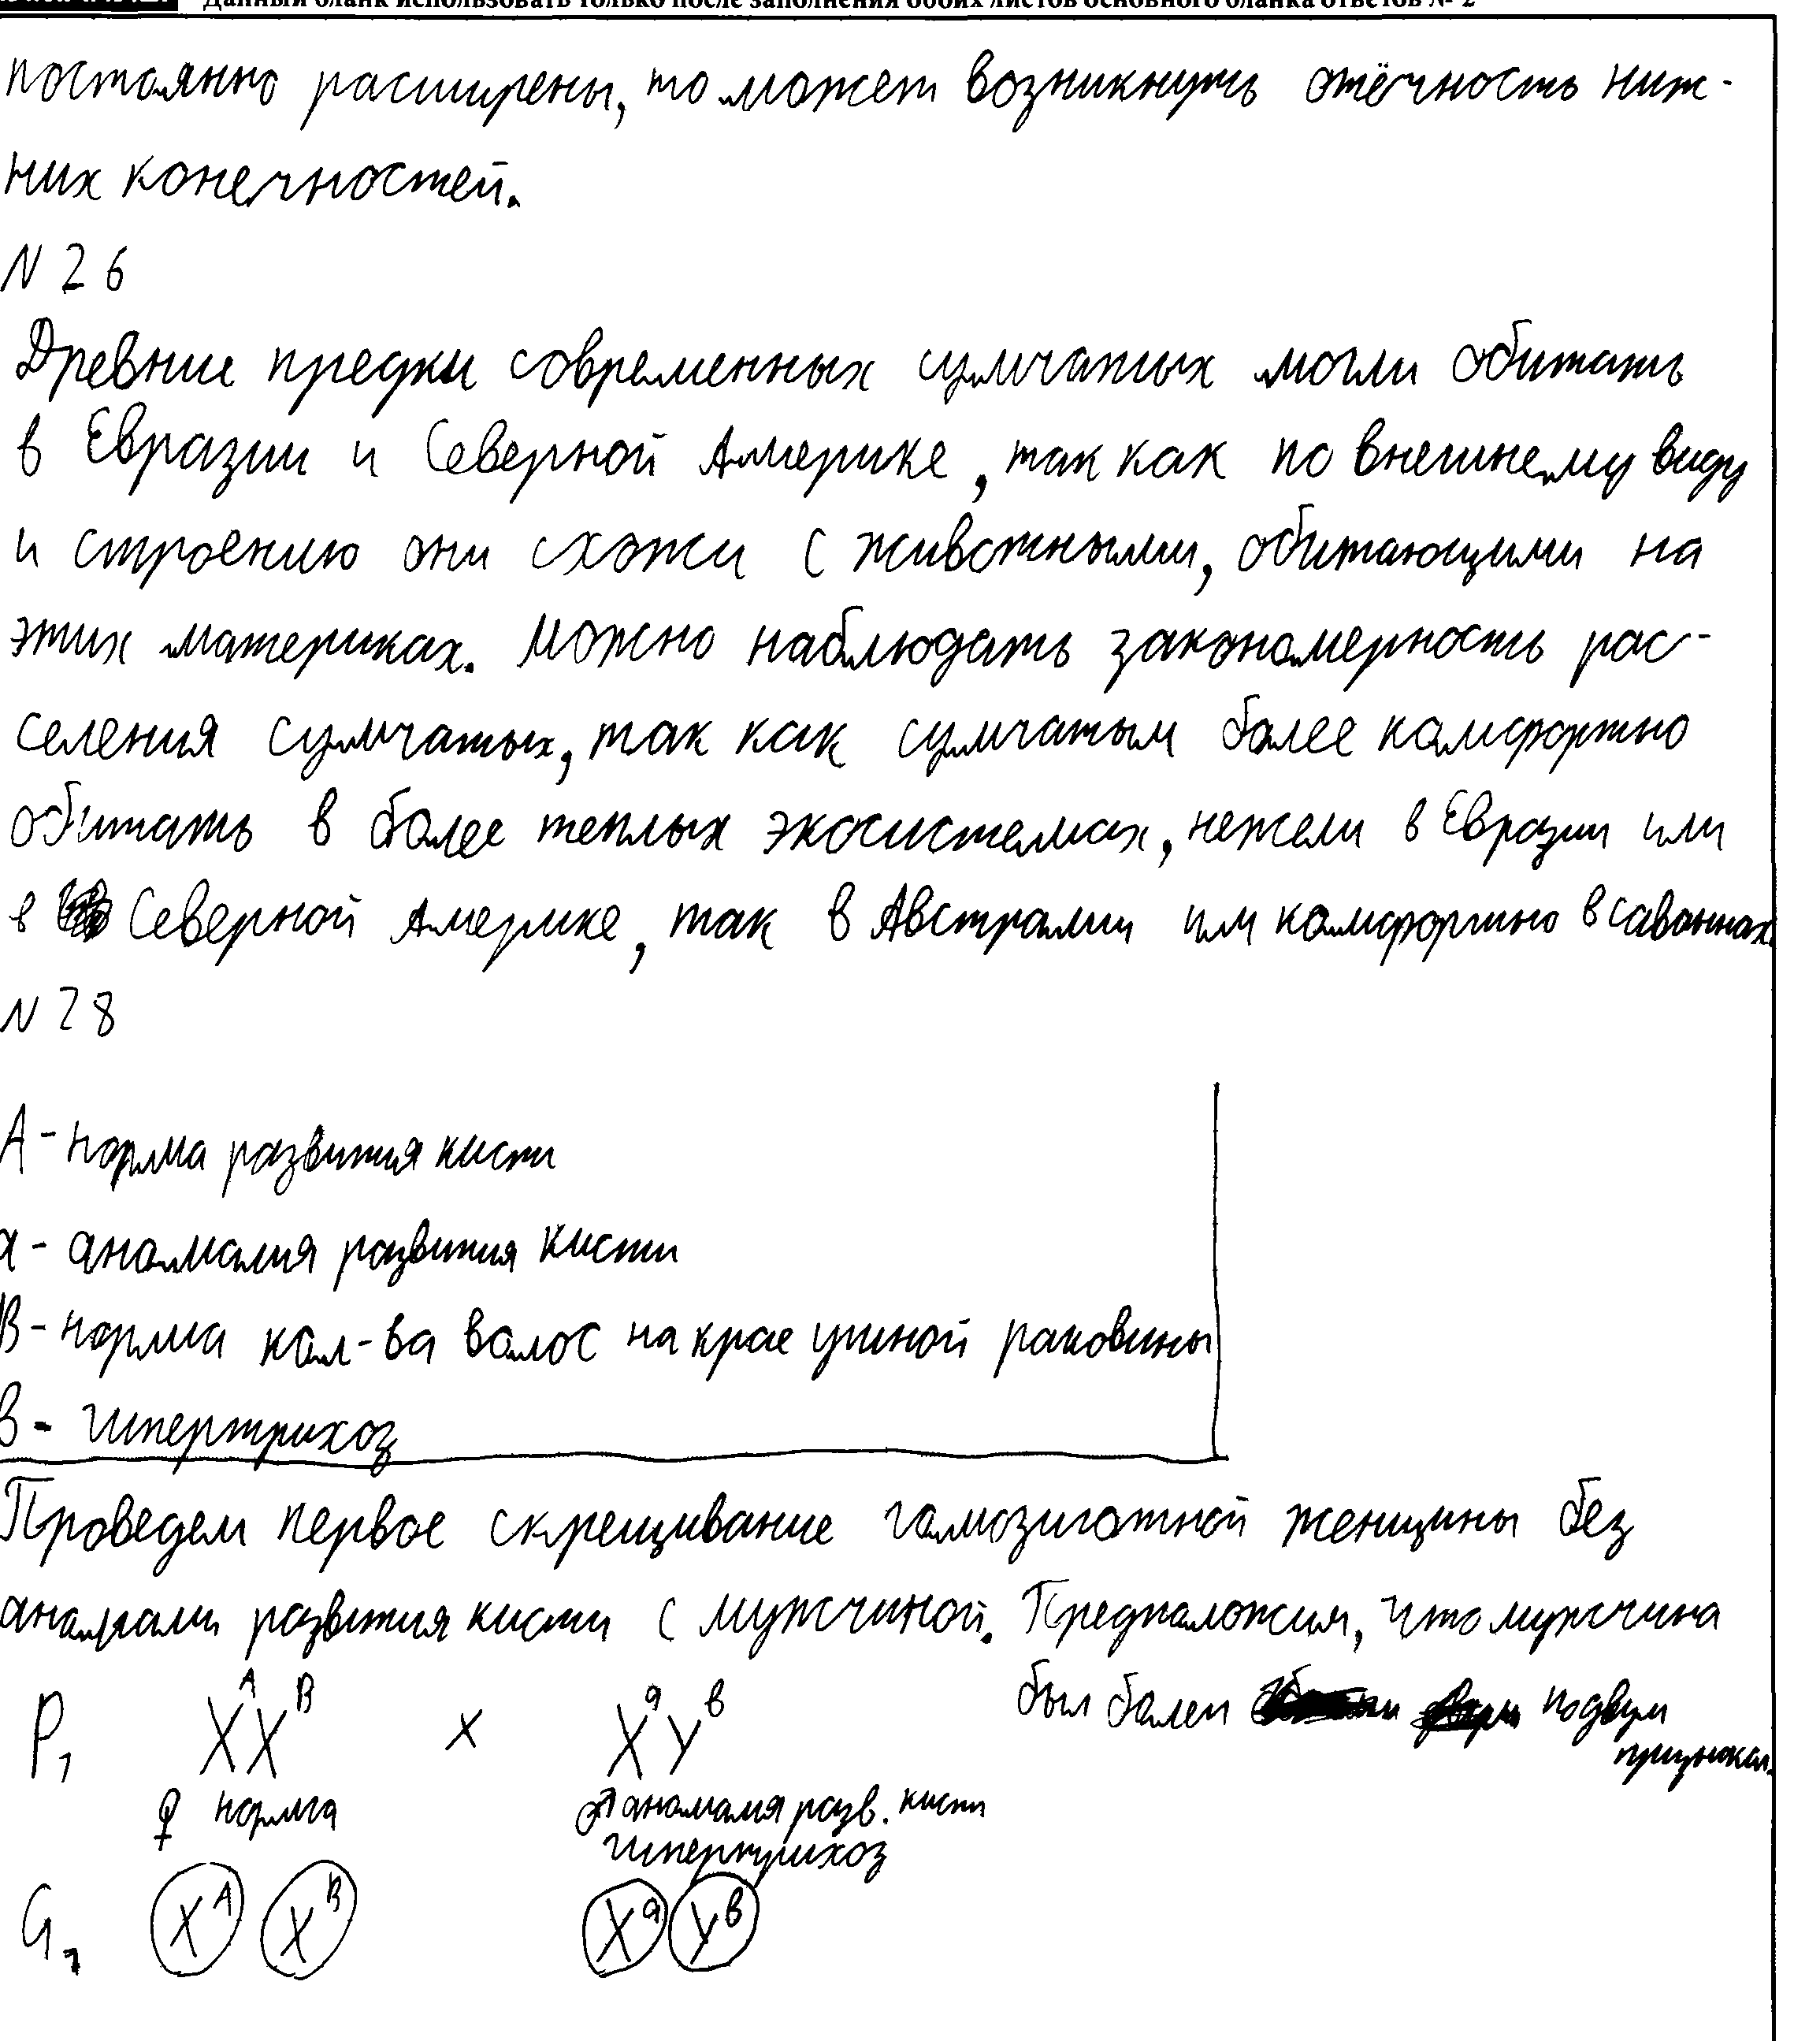 Данный бланк использовать только после заполнения обоих листов основного бланка ответов № 2
постоянно расширены, то может возникнуть отёчность ниж-
них конечностей.
N 26
Древние предки современных сумчатых могли обитать
в Евразии и Северной Америке, так как по внешнему виду
и строению они схожи с животными, обитающими на
этих материках. Можно наблюдать закономерность рас-
селения сумчатых, так как сумчатым более комфортно
обитать в более теплых экосистемах, нежели в Евразии или
в Северной Америке, так в Австралии им комфортно в саваннах.
N 28
А - норма развития кисти
а - аномалия развития кисти
В - норма кол-ва волос на крае ушной раковины
в - гипертрихоз
Проведем первое скрещивание гомозиготной женщины без
аномалии развития кисти с мужчиной. Предположим, что мужчина
был болен по двум
признакам.
P₁ XᴬXᴮ x XᵃYᵇ
♀ норма ♂ аномалия разв. кисти
гипертрихоз
G₁ Xᴬ Xᴮ Xᵃ Yᵇ